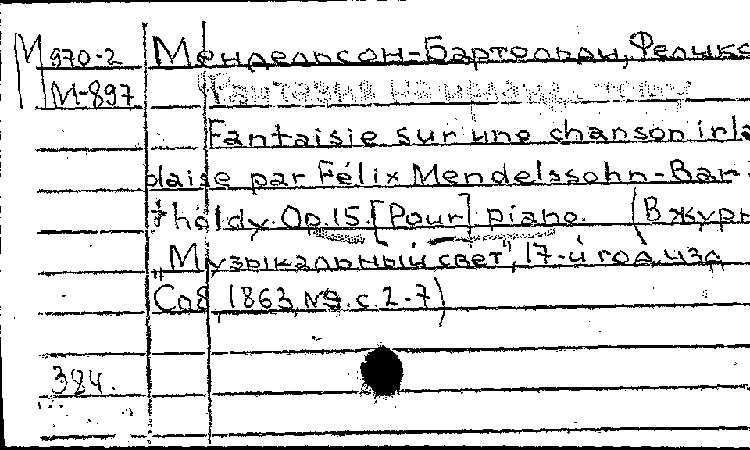 М 970-2 Мендельсон-Бартольди, Феликс
М-897 Фантазия на ирланд. тему
Fantaisie sur une chanson irla
daise par Félix Mendelssohn-Bar-
tholdy. Op.15. [Pour] piano. (В журн
"Музыкальный свет", 17-й год изд
Спб, 1863, №9. с. 2-7)
384.